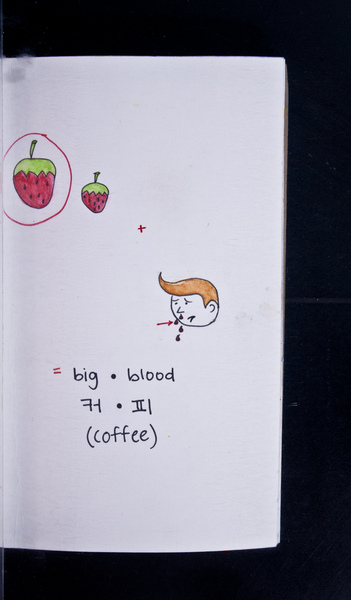 +
= big • blood
커 • 피
(coffee)